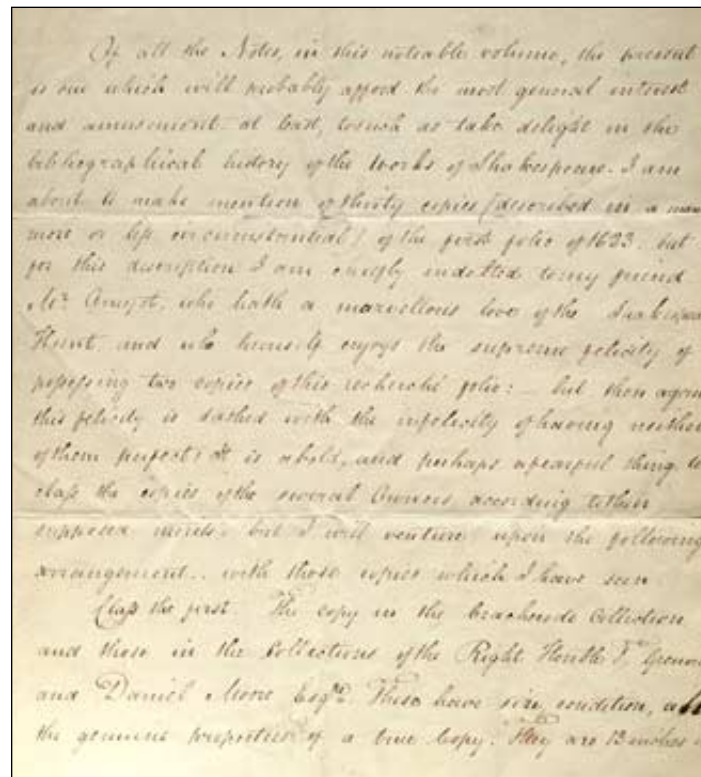 Of all the Notes, in this noteable volume, the present
is one which will probably afford the most general interest
and amusement at least, to such as take delight in the
bibliographical history of the works of Shakespeare. I am
about to make mention of thirty copies (described in a
more or less circumstantial) of the first folio of 1623. but
for this description I am chiefly indebted to my friend
Mr. who hath a marvellous love of the
Hunt, and who himself enjoys the supreme felicity of
possessing two copies of this recherché folio: – but then again
this felicity is dashed with the infelicity of having neither
of them perfect: It is a bold, and perhaps a fearful thing to
class the copies of the several Owners according to their
supposed merits. but I will venture upon the following
arrangement.. with those copies which I have seen
Class the first The copy in the Collection
and those in the Collections of the Right Honble T.
and Daniel Moore Esqre. These have size, condition,
the genuine properties of a true Copy. They are 13 inches